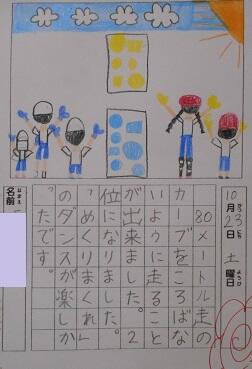 10月23日 土曜日
80メートル走の
カーブをころばな
いように走ること
が出来ました。2
位になりました。
「めくりまくれ」
のダンスが楽しか
ったです。
名前